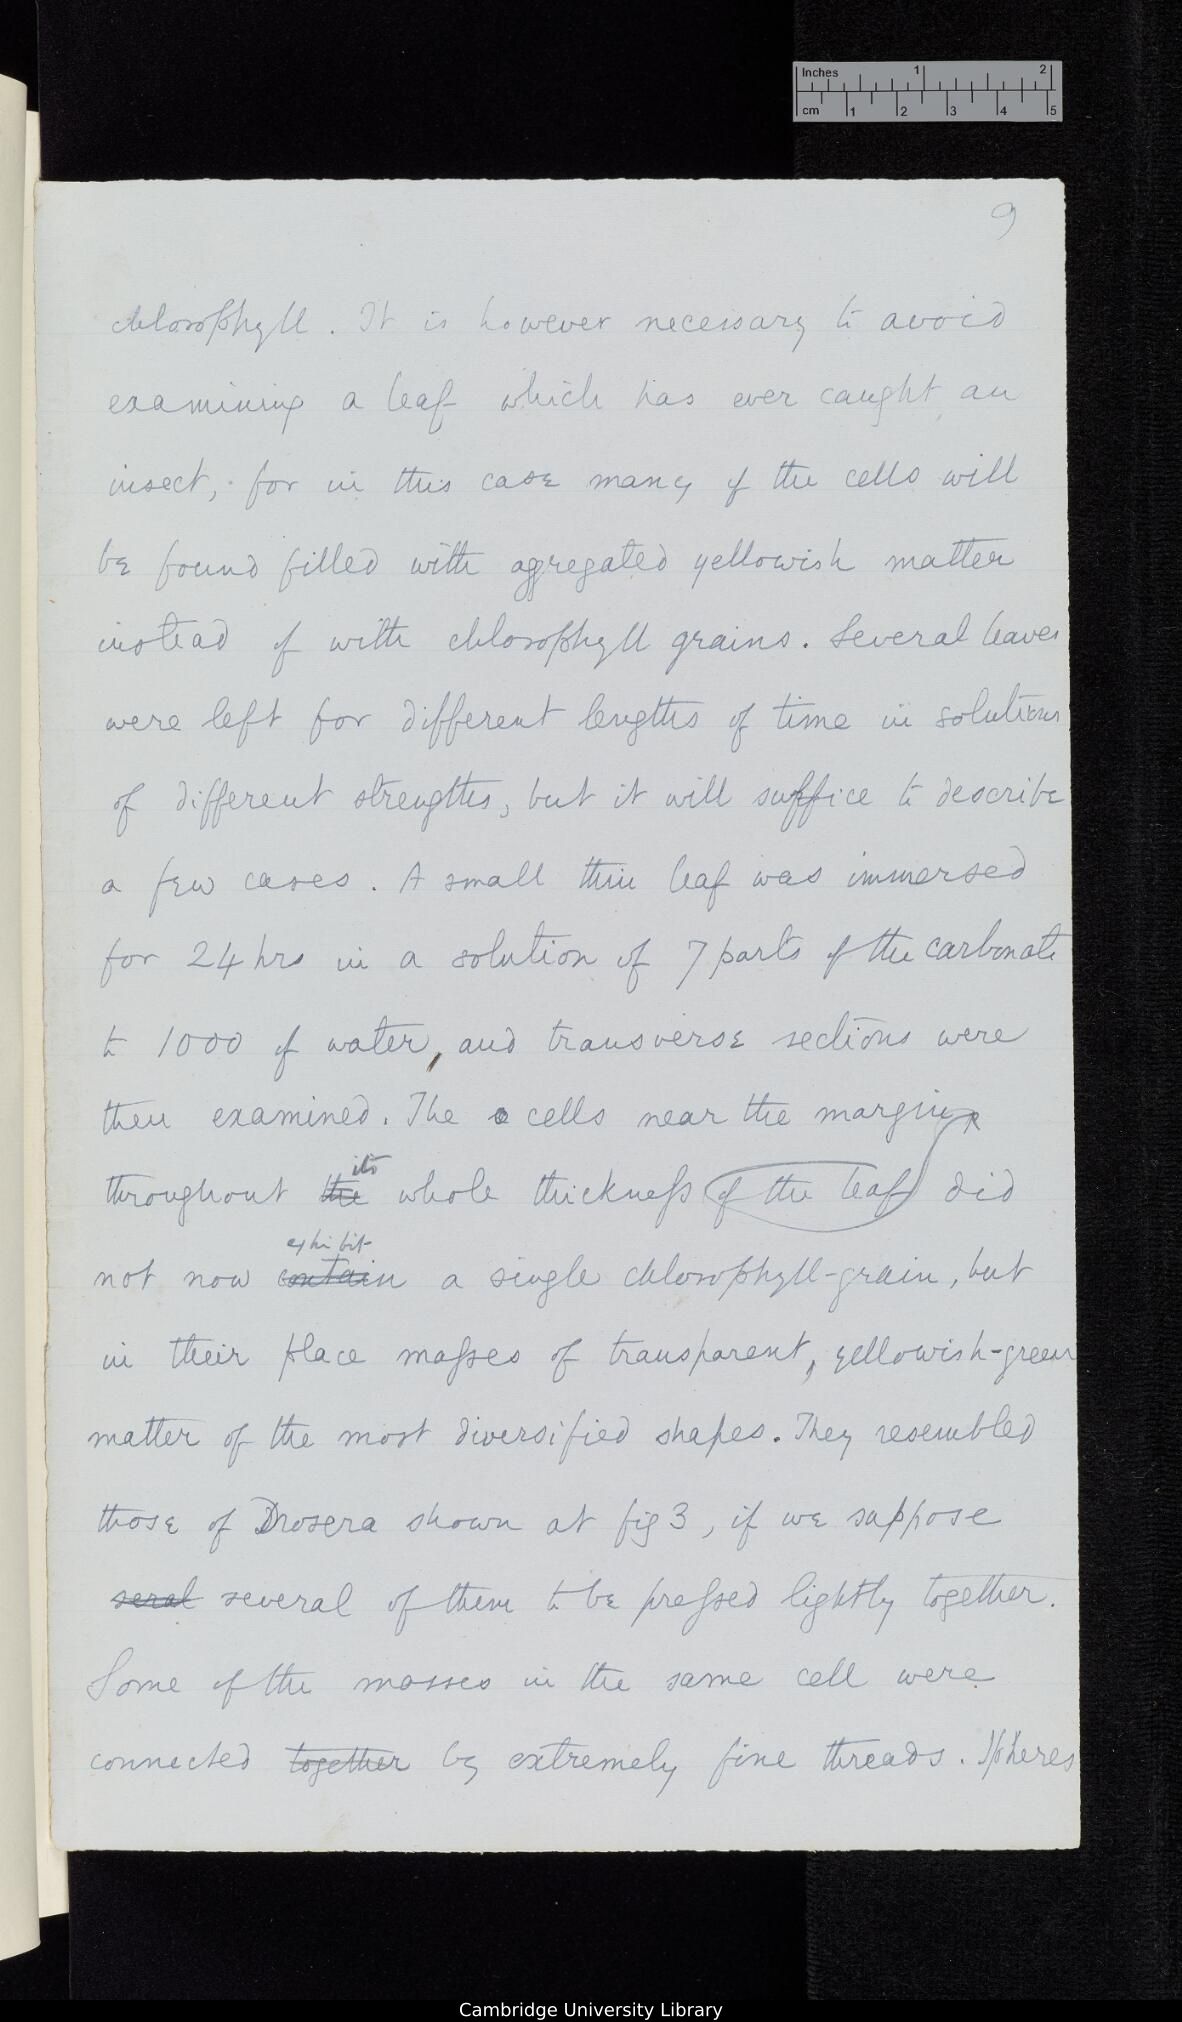 Inches 1 2
cm 1 2 3 4 5
9
chlorophyll. It is however necessary to avoid
examining a leaf which has ever caught an
insect, for in this case many of the cells will
be found filled with aggregated yellowish matter
instead of with chlorophyll grains. Several leaves
were left for different lengths of time in solutions
of different strengths, but it will suffice to describe
a few cases. A small thin leaf was immersed
for 24 hrs in a solution of 7 parts of the carbonate
to 1000 of water, and transverse sections were
then examined. The cells near the margin
its
throughout the whole thickness of the leaf did
exhibit
not now contain a single chlorophyll-grain, but
in their place masses of transparent, yellowish-green
matter of the most diversified shapes. They resembled
those of Drosera shown at fig 3, if we suppose
seral several of them to be pressed lightly together.
Some of the masses in the same cell were
connected together by extremely fine threads. Spheres
Cambridge University Library